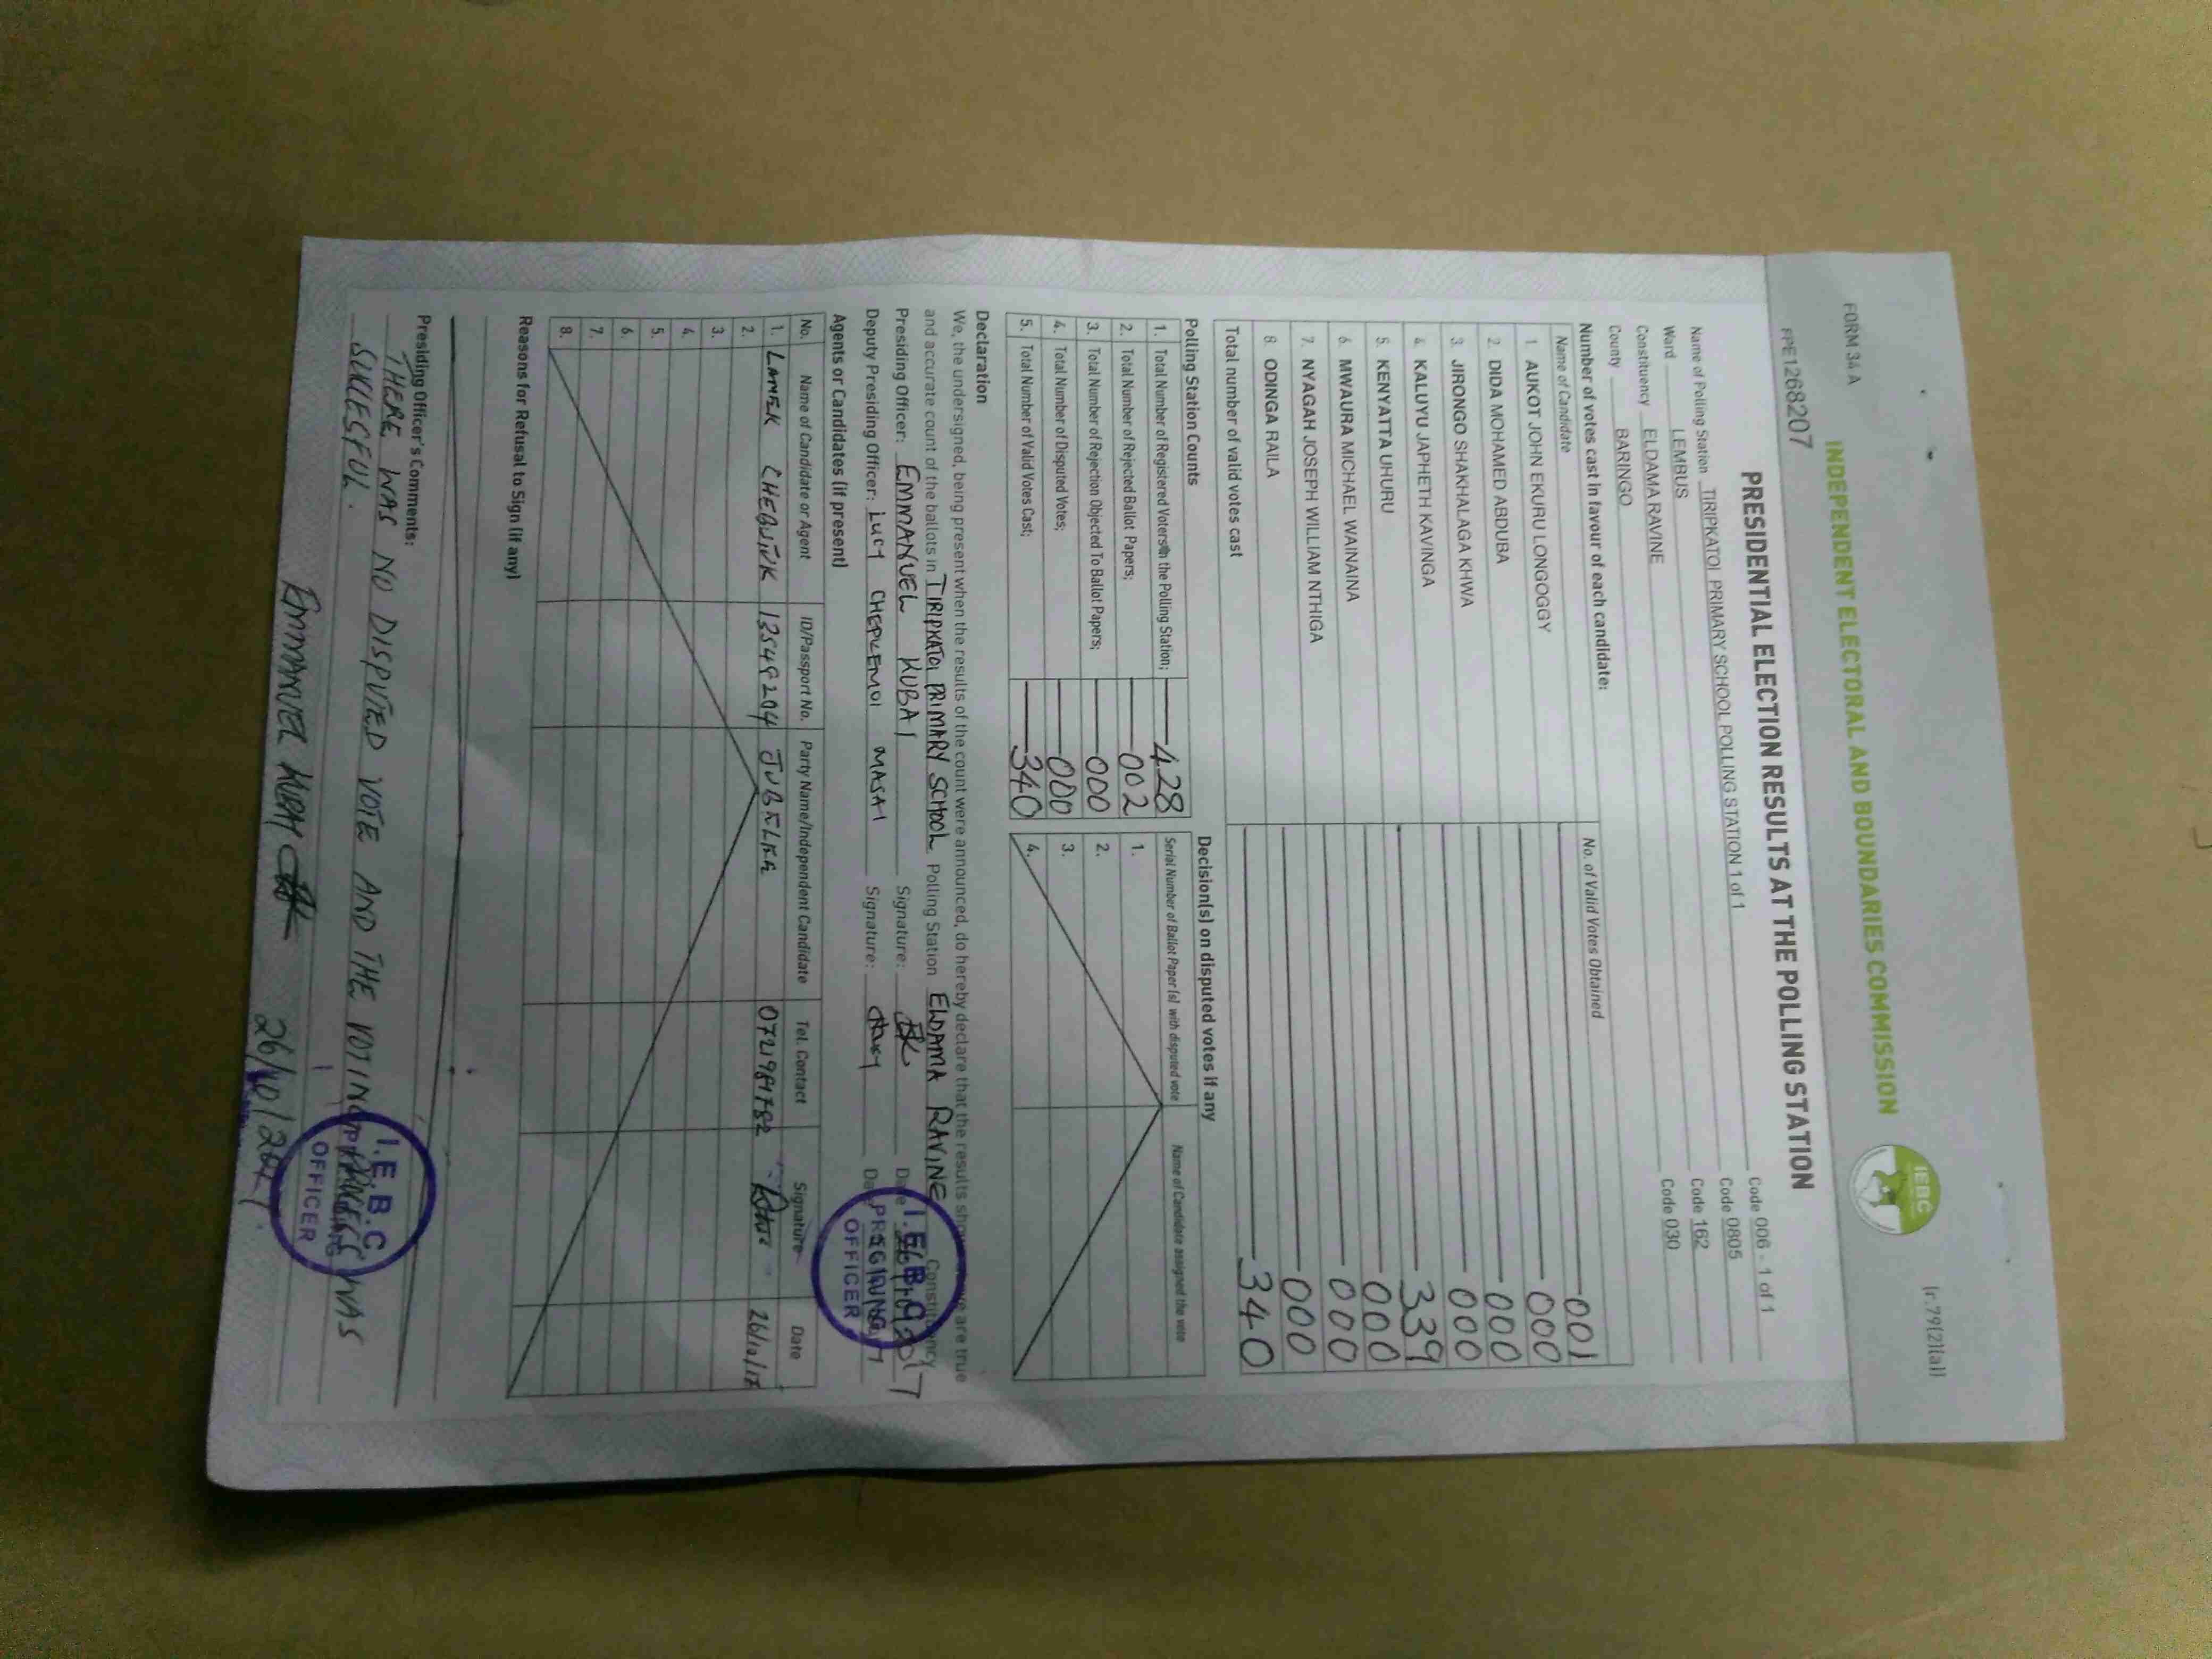 FORM 34 A
(r.79(2)(a))
INDEPENDENT ELECTORAL AND BOUNDARIES COMMISSION
IEBC
FPE1268207
PRESIDENTIAL ELECTION RESULTS AT THE POLLING STATION
Name of Polling Station TIRIPKATOI PRIMARY SCHOOL POLLING STATION 1 of 1 Code 006 - 1 of 1
Ward LEMBUS Code 0805
Constituency ELDAMA RAVINE Code 162
County BARINGO Code 030
Number of votes cast in favour of each candidate:
Name of Candidate No. of Valid Votes Obtained
1. AUKOT JOHN EKURU LONGOGGY 001
2. DIDA MOHAMED ABDUBA 000
3. JIRONGO SHAKHALAGA KHWA 000
4. KALUYU JAPHETH KAVINGA 000
5. KENYATTA UHURU 339
6. MWAURA MICHAEL WAINAINA 000
7. NYAGAH JOSEPH WILLIAM NTHIGA 000
8. ODINGA RAILA 000
Total number of valid votes cast 340
Polling Station Counts
1. Total Number of Registered Voters in the Polling Station; 428
2. Total Number of Rejected Ballot Papers; 002
3. Total Number of Rejection Objected To Ballot Papers; 000
4. Total Number of Disputed Votes; 000
5. Total Number of Valid Votes Cast; 340
Decision(s) on disputed votes if any
Serial Number of Ballot Paper (s) with disputed vote Name of Candidate assigned the vote
1.
2.
3.
4.
Declaration
We, the undersigned, being present when the results of the count were announced, do hereby declare that the results shown above are true
and accurate count of the ballots in TIRIPKATOI PRIMARY SCHOOL Polling Station ELDAMA RAVINE Constituency
Presiding Officer: EMMANUEL KUBAI Signature: Date
Deputy Presiding Officer: LUCY CHEPLEMOI MASAI Signature: Date
I.E.B.C
PRESIDING
OFFICER
Agents or Candidates (if present)
No. Name of Candidate or Agent ID/Passport No. Party Name/Independent Candidate Tel. Contact Signature Date
1. LAMEK CHEBUTUK 13549204 JUBILEE 0721981782 26/10/17
2.
3.
4.
5.
6.
7.
8.
Reasons for Refusal to Sign (if any)
Presiding Officer's Comments:
THERE WAS NO DISPUTED VOTE AND THE VOTING PROCESS WAS
SUCCESFUL.
EMMANUEL KUBAI 26/10/2017.
I.E.B.C
PRESIDING
OFFICER